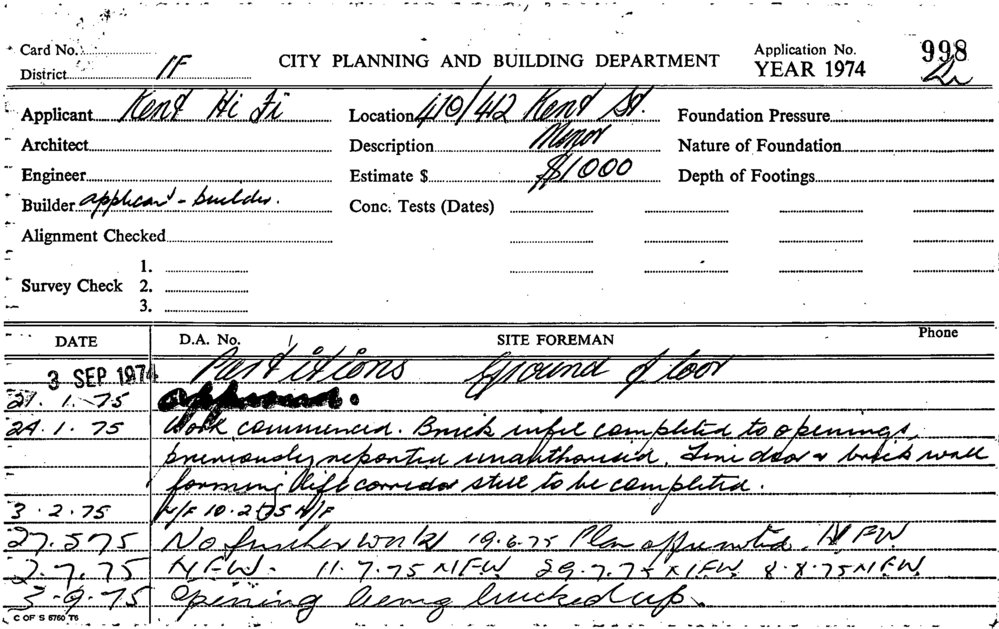 Card No.
Application No. 998
CITY PLANNING AND BUILDING DEPARTMENT
District 1F
YEAR 1974
Applicant Kent Hi Fi
Location 410/412 Kent St.
Foundation Pressure
Architect
Description Minor
Nature of Foundation
Engineer
Estimate $ $1000
Depth of Footings
Builder applicant - builder.
Conc. Tests (Dates)
Alignment Checked
1.
Survey Check 2.
3.
DATE D.A. No. SITE FOREMAN Phone
3 SEP 1974 Partitions Ground floor
21. 1. 75 approved.
24. 1. 75 Work commenced. Brick infil completed to openings
previously reported unauthorised. Fire door & brick wall
forming lift corridor still to be completed.
3. 2. 75 N/F 10.2.75 N/F
27.5.75 No further work 19.6.75 Plan N FW
2.7.75 N.F.W. 11.7.75 N.F.W. 29.7.75 N.F.W. 8.8.75 N.F.W.
3.9.75 Opening being bricked up.
C OF S 5750 T6